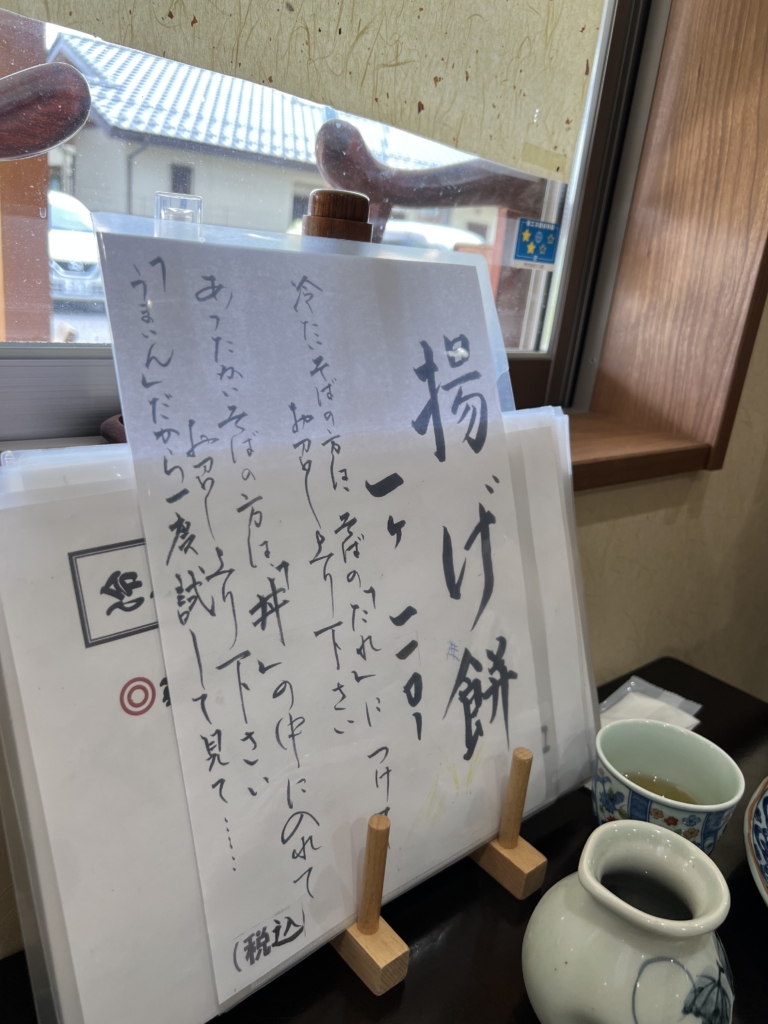 揚げ餅
一ヶ 一一〇ー
冷たいそばの方は、そばの「たれ」につけて
お召し上り下さい
あったかいそばの方は、「丼」の中に入れて
お召し上り下さい
「うまいん」だから一度試して見て……
(税込)